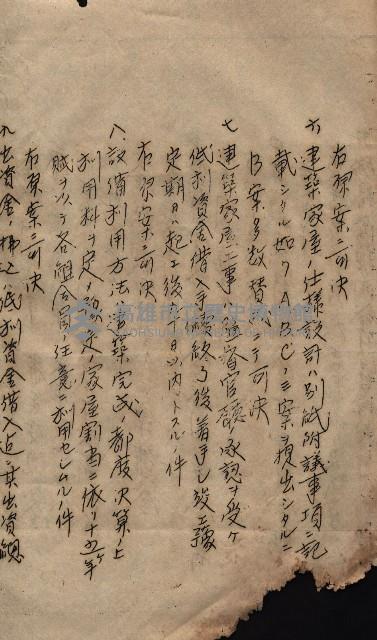 右原案ニ可決
六、建築家屋ノ仕様設計ハ別紙附議事項ニ記
載シタル如クABCノ三案ヲ提出シタルニ
B案多数賛成ニテ可決
七、建築家屋工事ハ監督官廳ノ承認ヲ受ケ
低利資金借入手続終了後着手シ竣工豫
定期日ハ起工後 日以内トスルノ件
右原案ニ可決
八、設備利用方法ハ建築完成ノ都度決算ノ上
利用料ヲ定メ 定ノ家屋割当ニ依リ十五ヶ年
賦ヲ以テ各組合員ノ任意ニ利用セシムルノ件
右原案ニ可決
九、出資金ノ払込ハ低利資金借入迄ニ其出資總
高雄市立歷史博物館
KAOHSIUNG MUSEUM OF HISTORY